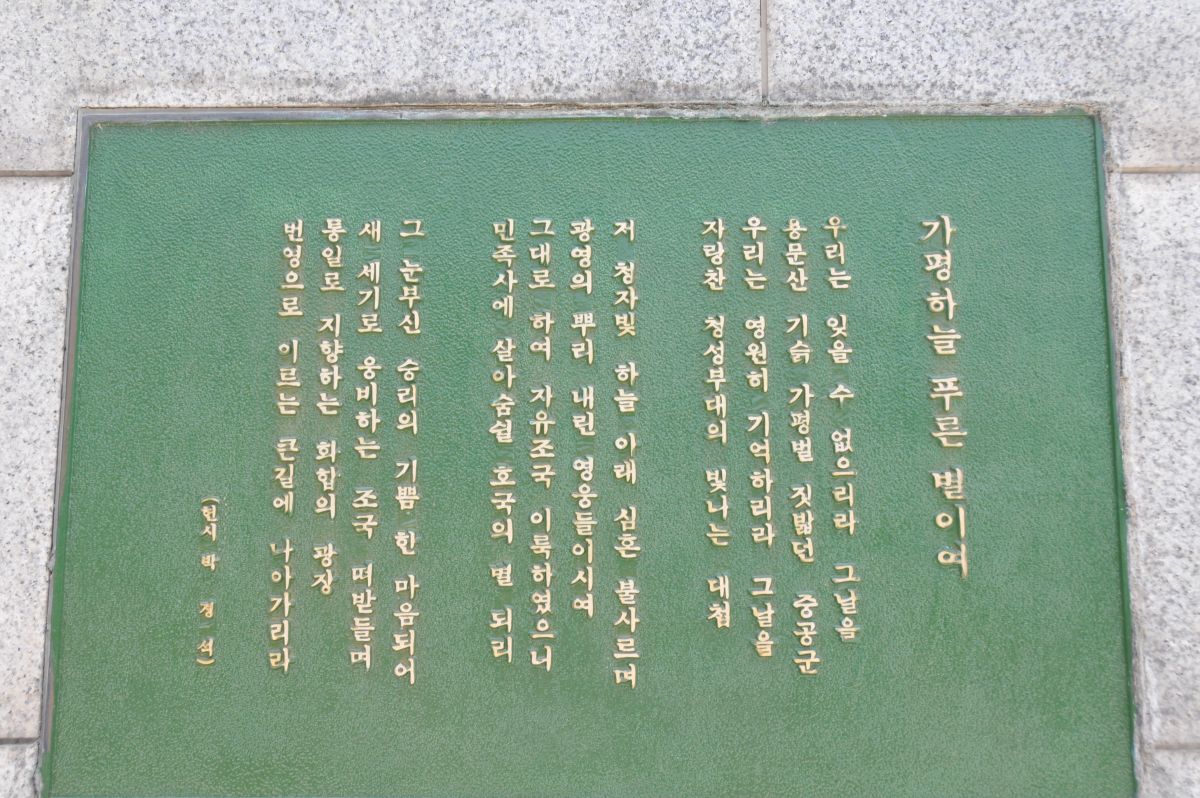 가평하늘 푸른 별이여
우리는 잊을 수 없으리라 그날을
용문산 기슭 가평벌 짓밟던 중공군
우리는 영원히 기억하리라 그날을
자랑찬 청성부대의 빛나는 대첩
저 청자빛 하늘 아래 심혼 불사르며
광영의 뿌리 내린 영웅들이시여
그대로 하여 자유조국 이룩하였으니
민족사에 살아숨쉴 호국의 별 되리
그 눈부신 승리의 기쁨 한 마음되어
새 세기로 웅비하는 조국 떠받들며
통일로 지향하는 화합의 광장
번영으로 이르는 큰길에 나아가리라
(헌시 박 경 석)